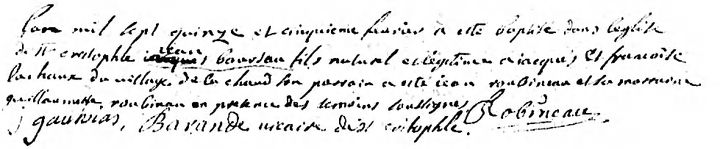 Lan mil sept quinze et cinquieme fevrier a este baptisé dans leglise
de St cristophle jean boussou fils naturel et legitime a jacques et francoise
lachaux du village de la chaud son parrain a este jean roubineau et sa marraine
guillaumette roubineau en presence des temoins soussignes Robineau
gautrias, Barande vicaire de St critophle.